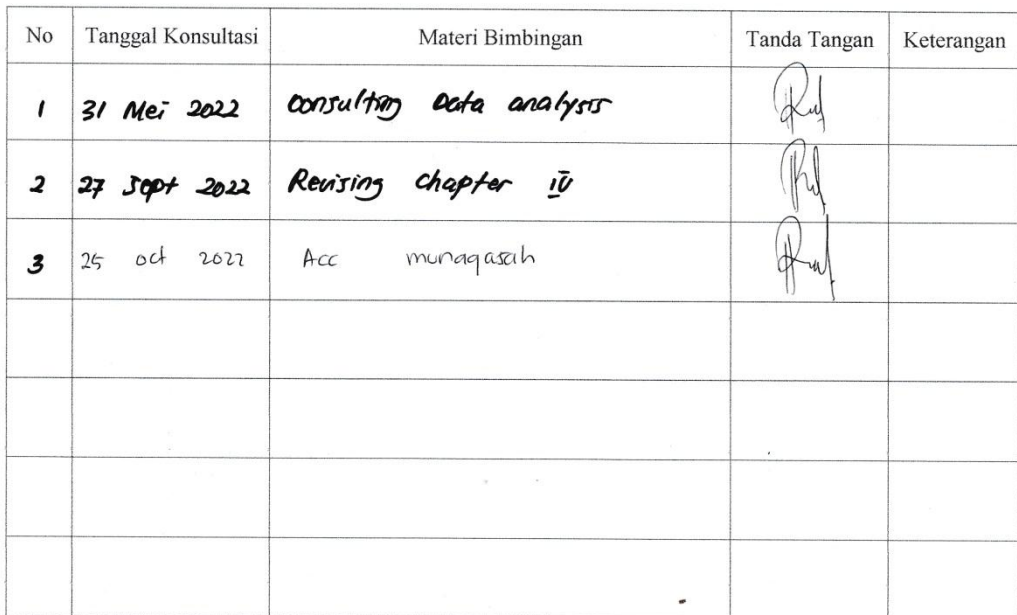 No Tanggal Konsultasi Materi Bimbingan Tanda Tangan Keterangan
1 31 Mei 2022 Consulting Data analysis
2 27 Sept 2022 Revising Chapter IV
3 25 oct 2022 Acc munaqasah